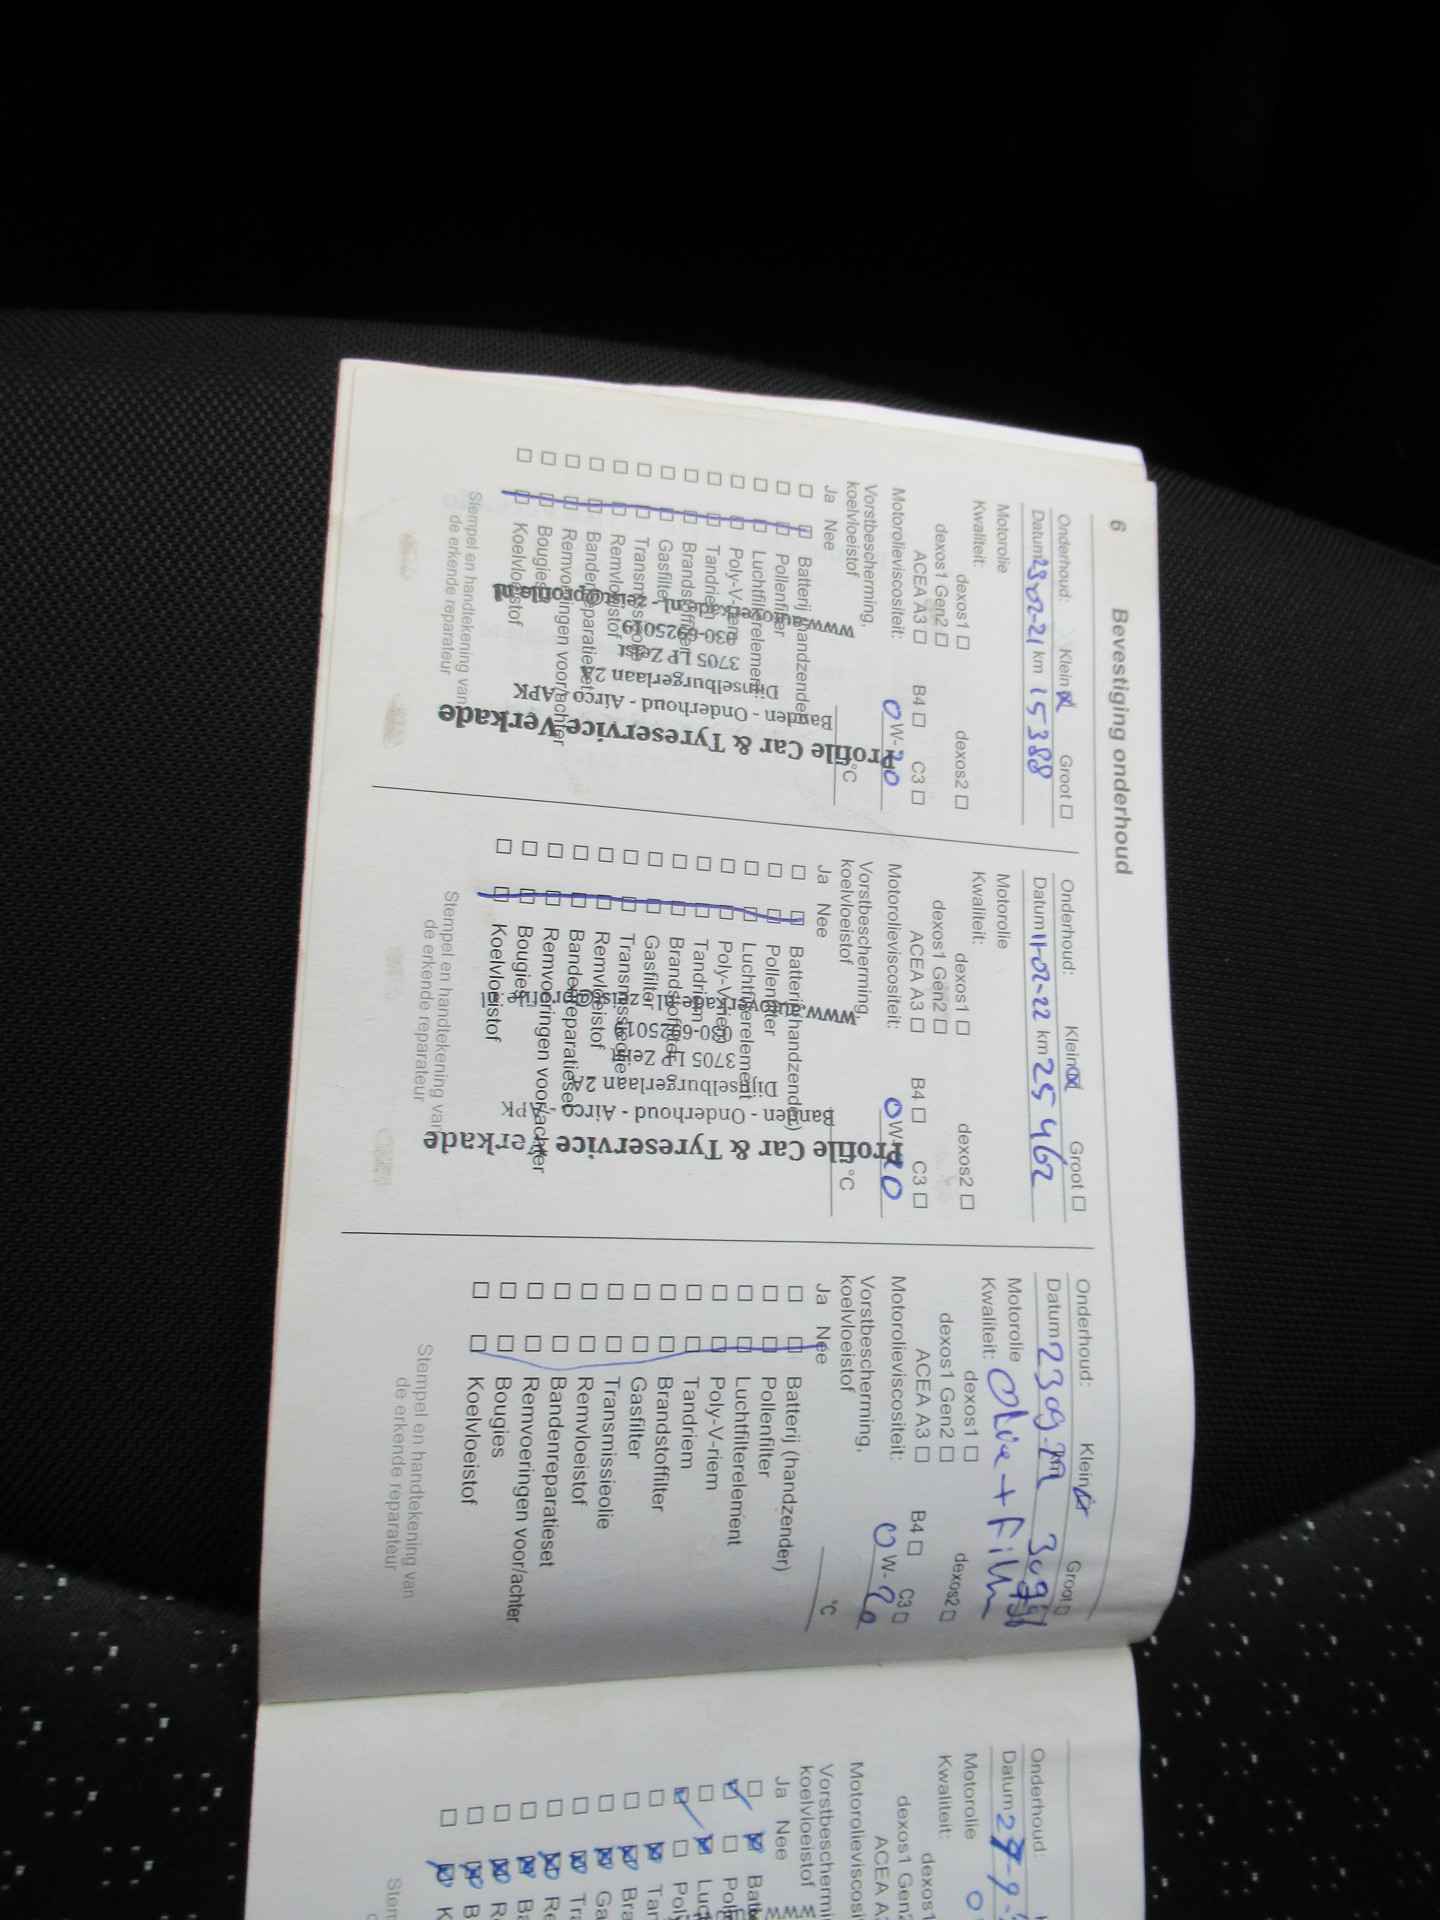 6 Bevestiging onderhoud
Onderhoud: Klein ☒ Groot ☐
Datum 23-02-21 km 15388
Motorolie
Kwaliteit:
dexos1 ☐ dexos2 ☐
dexos1 Gen2 ☐
ACEA A3 ☐ B4 ☐ C3 ☐
Motorolieviscositeit: 0 W-20
Vorstbescherming,
koelvloeistof °C
Ja Nee
☐ ☐ Batterij (handzender)
☐ ☐ Pollenfilter
☐ ☐ Luchtfilterelement
☐ ☐ Poly-V-riem
☐ ☐ Tandriem
☐ ☐ Brandstoffilter
☐ ☐ Gasfilter
☐ ☐ Transmissieolie
☐ ☐ Remvloeistof
☐ ☐ Bandenreparatieset
☐ ☐ Remvoeringen voor/achter
☐ ☐ Bougies
☐ ☐ Koelvloeistof
Stempel en handtekening van
de erkende reparateur
Profile Car & Tyreservice Verkade
Banden - Onderhoud - Airco - APK
Dijnselburgerlaan 2A
3705 LP Zeist
030-6925019
www.autoverkade.nl - zeist@profile.nl
Onderhoud: Klein ☒ Groot ☐
Datum 11-02-22 km 25462
Motorolie
Kwaliteit:
dexos1 ☐ dexos2 ☐
dexos1 Gen2 ☐
ACEA A3 ☐ B4 ☐ C3 ☐
Motorolieviscositeit: 0 W-20
Vorstbescherming,
koelvloeistof °C
Ja Nee
☐ ☐ Batterij (handzender)
☐ ☐ Pollenfilter
☐ ☐ Luchtfilterelement
☐ ☐ Poly-V-riem
☐ ☐ Tandriem
☐ ☐ Brandstoffilter
☐ ☐ Gasfilter
☐ ☐ Transmissieolie
☐ ☐ Remvloeistof
☐ ☐ Bandenreparatieset
☐ ☐ Remvoeringen voor/achter
☐ ☐ Bougies
☐ ☐ Koelvloeistof
Stempel en handtekening van
de erkende reparateur
Profile Car & Tyreservice Verkade
Banden - Onderhoud - Airco - APK
Dijnselburgerlaan 2A
3705 LP Zeist
030-6925019
www.autoverkade.nl - zeist@profile.nl
Onderhoud: Klein ☒ Groot ☐
Datum 2309
Motorolie
Kwaliteit: Olie +
dexos1 ☐ dexos2 ☐
dexos1 Gen2 ☐
ACEA A3 ☐ B4 ☐ C3 ☐
Motorolieviscositeit: 0 W-20
Vorstbescherming,
koelvloeistof °C
Ja Nee
☐ ☐ Batterij (handzender)
☐ ☐ Pollenfilter
☐ ☐ Luchtfilterelement
☐ ☐ Poly-V-riem
☐ ☐ Tandriem
☐ ☐ Brandstoffilter
☐ ☐ Gasfilter
☐ ☐ Transmissieolie
☐ ☐ Remvloeistof
☐ ☐ Bandenreparatieset
☐ ☐ Remvoeringen voor/achter
☐ ☐ Bougies
☐ ☐ Koelvloeistof
Stempel en handtekening van
de erkende reparateur
Onderhoud:
Datum
Motorolie
Kwaliteit:
dexos1
dexos1 Gen2
ACEA A
Motorolieviscosi
Vorstbescherm
koelvloeistof
Ja Nee
Stem